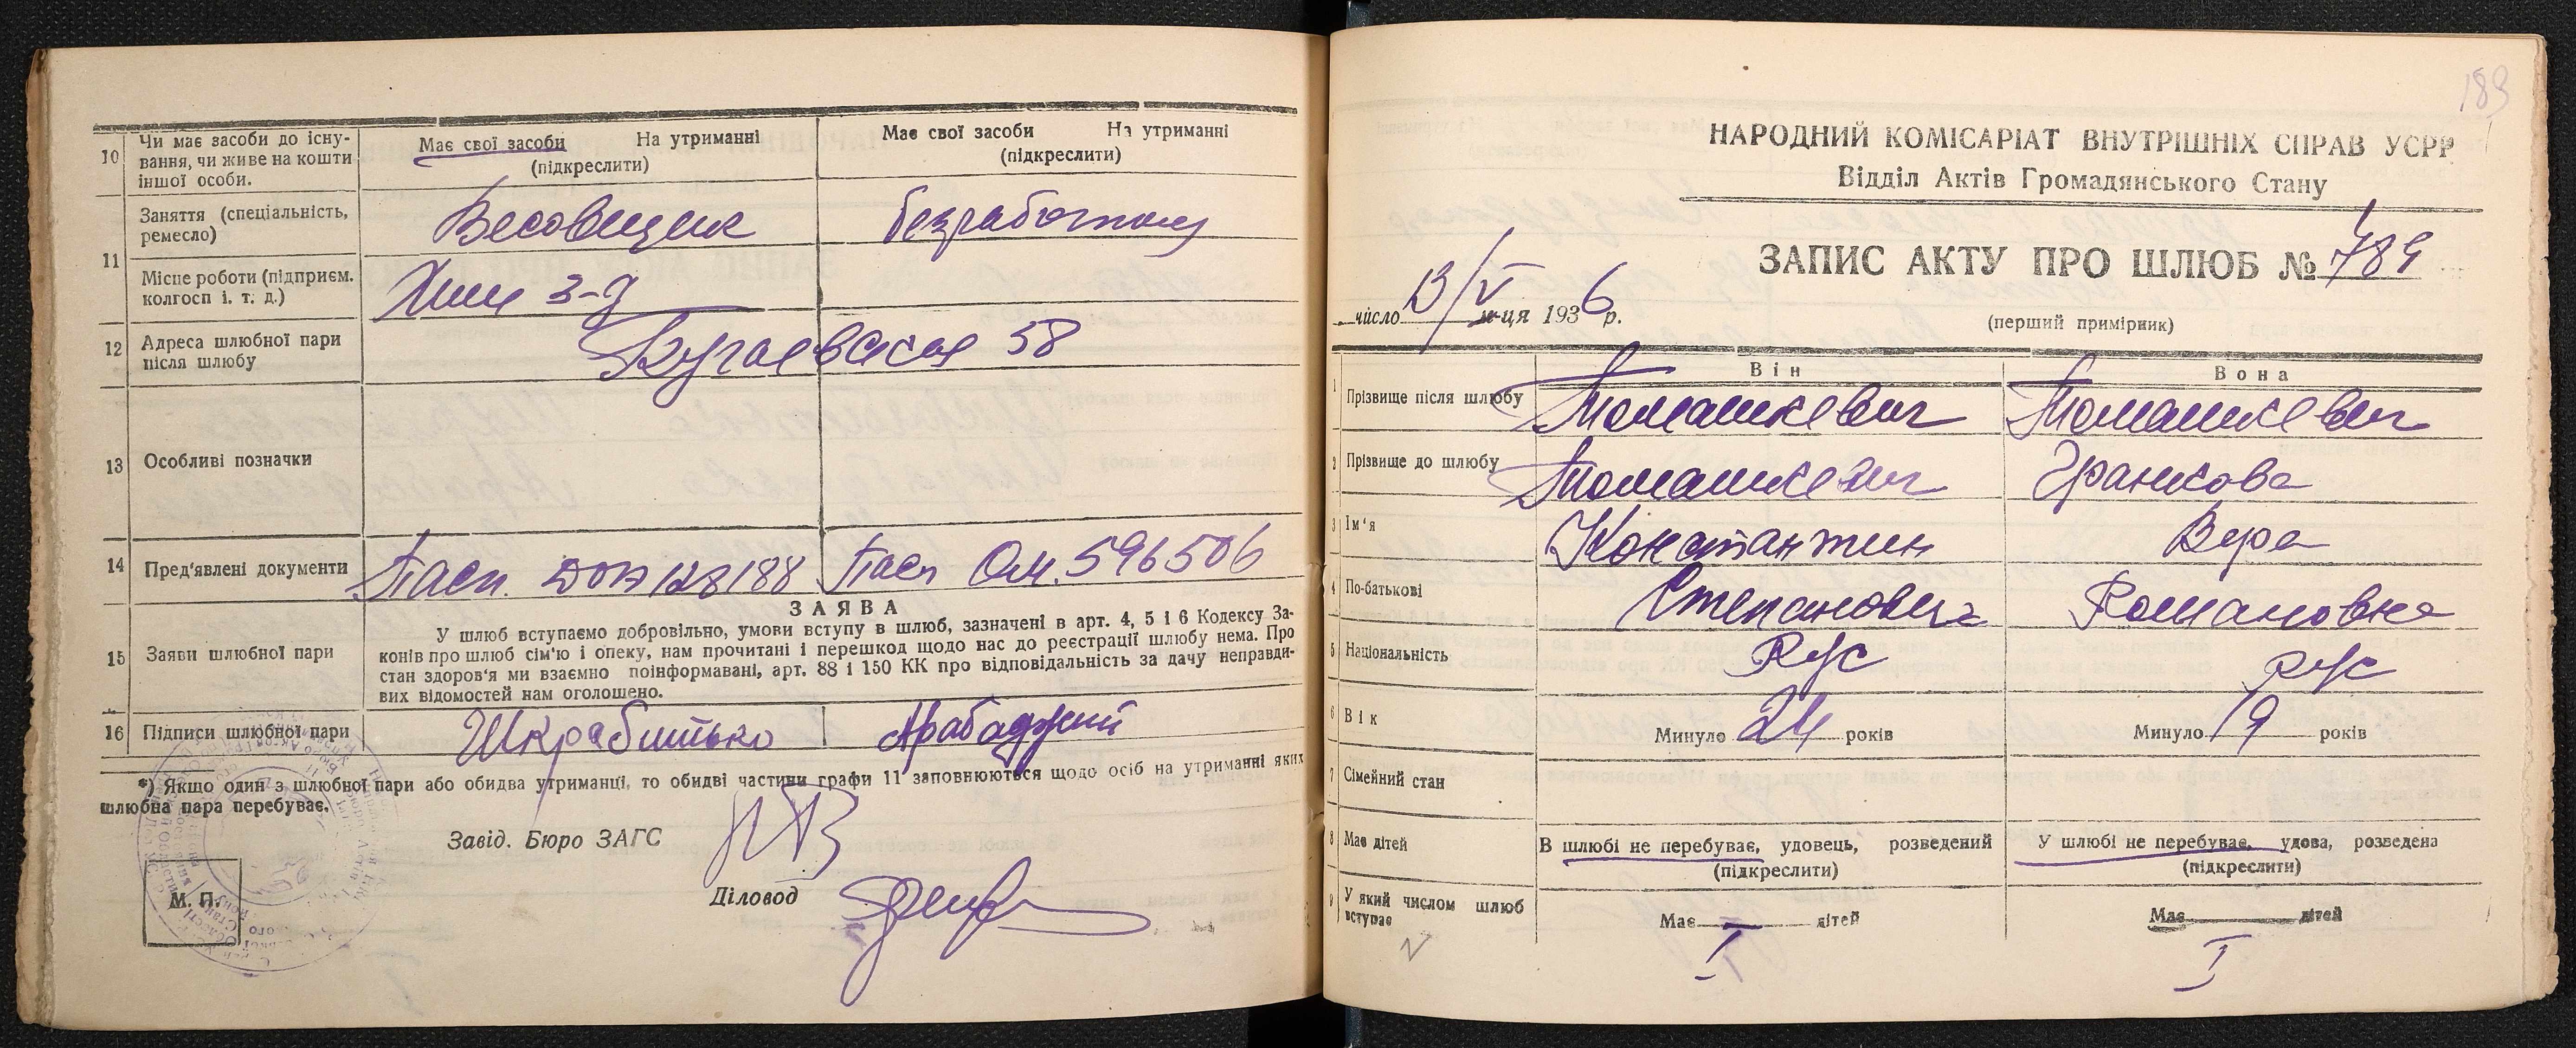 10 Чи має засоби до існу-
вання, чи живе на кошти
іншої особи.
Має свої засоби На утриманні
(підкреслити)
Має свої засоби На утриманні
(підкреслити)
11 Заняття (спеціальність,
ремесло)
Весовщик
безработный
Місце роботи (підприєм.
колгосп і. т. д.)
Хим з-д
12 Адреса шлюбної пари
після шлюбу
58
13 Особливі позначки
14 Пред'явлені документи
Пасп. 128188 Пасп ОМ. 596506
ЗАЯВА
15 Заяви шлюбної пари
У шлюб вступаємо добровільно, умови вступу в шлюб, зазначені в арт. 4, 5 і 6 Кодексу За-
конів про шлюб сім'ю і опеку, нам прочитані і перешкод щодо нас до реєстрації шлюбу нема. Про
стан здоров'я ми взаємно поінформавані, арт. 88 і 150 КК про відповідальність за дачу неправди-
вих відомостей нам оголошено.
16 Підписи шлюбної пари
Арабаджий
*) Якщо один з шлюбної пари або обидва утриманці, то обидві частини графи 11 заповнюються щодо осіб на утриманні яких
шлюбна пара перебуває.
Завід. Бюро ЗАГС
Діловод
М. П.
189
НАРОДНИЙ КОМІСАРІАТ ВНУТРІШНІХ СПРАВ УСРР
Відділ Актів Громадянського Стану
ЗАПИС АКТУ ПРО ШЛЮБ № 789
число 13/V м-ця 1936 р.
(перший примірник)
Він Вона
1 Прізвище після шлюбу Томашкевич Томашкевич
2 Прізвище до шлюбу Томашкевич Гранкова
3 Ім'я Константин Вера
4 По-батькові Степанович Романовна
5 Національність Рус рус
6 Вік Минуло 24 років Минуло 19 років
7 Сімейний стан
8 Має дітей
В шлюбі не перебуває, удовець, розведений
(підкреслити)
У шлюбі не перебуває, удова, розведена
(підкреслити)
9 У який числом шлюб
вступає
Має дітей Має дітей
I I